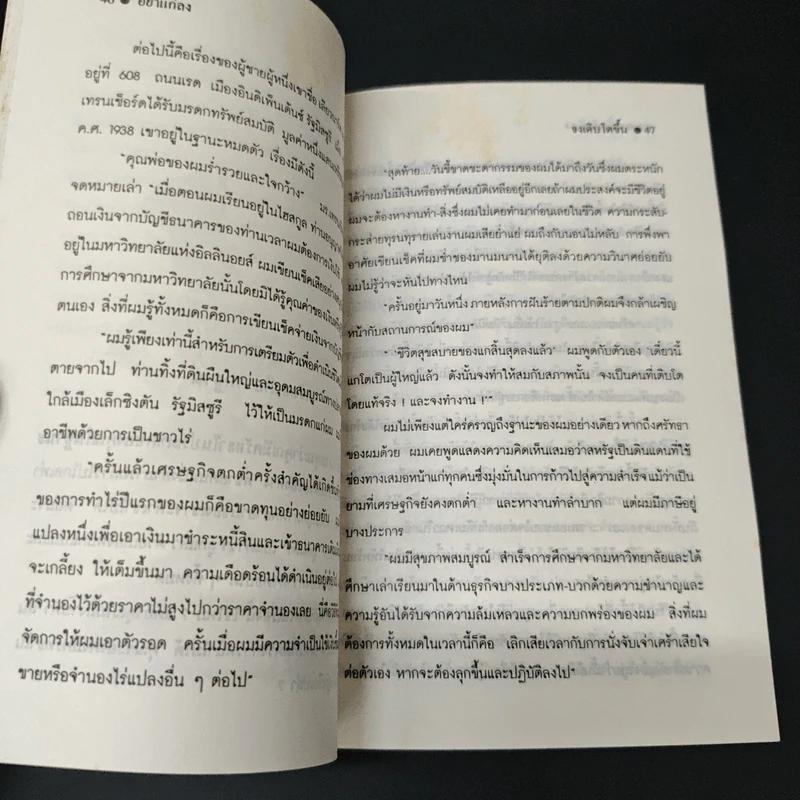 46 ● อย่าแกล้ง
ต่อไปนี้คือเรื่องของผู้ชายผู้หนึ่งเขาชื่อ
อยู่ที่ 608 ถนนเรด เมืองอินดิเพ็นเด้นซ์ รัฐมิสซูรี
เทรนเช็อร์ดได้รับมรดกทรัพย์สมบัติ มูลค่าหนึ่งแสน
ค.ศ. 1938 เขาอยู่ในฐานะหมดตัว เรื่องมีดังนี้
"คุณพ่อของผมร่ำรวยและใจกว้าง"
จดหมายเล่า "เมื่อตอนผมเรียนอยู่ในไฮสกูล
ถอนเงินจากบัญชีธนาคารของท่านเวลาผมต้องการ
อยู่ในมหาวิทยาลัยแห่งอิลลินอยส์ ผมเขียนเช็คเสีย
การศึกษาจากมหาวิทยาลัยนั้นโดยมิได้รู้คุณค่าของ
ตนเอง สิ่งที่ผมรู้ทั้งหมดก็คือการเขียนเช็คจ่ายเงินจาก
"ผมรู้เพียงเท่านี้สำหรับการเตรียมตัวเพื่อดำเนินชีวิต
ตายจากไป ท่านทิ้งที่ดินผืนใหญ่และอุดมสมบูรณ์
ใกล้เมืองเล็กซิงตัน รัฐมิสซูรี ไว้ให้เป็นมรดกแก่ผม
อาชีพด้วยการเป็นชาวไร่
"ครั้นแล้วเศรษฐกิจตกต่ำครั้งสำคัญได้เกิดขึ้น
ของการทำไร่ปีแรกของผมก็คือขาดทุนอย่างย่อยยับ
แปลงหนึ่งเพื่อเอาเงินมาชำระหนี้สินและเข้าธนาคาร
จะเกลี้ยง ให้เต็มขึ้นมา ความเดือดร้อนได้ดำเนินอยู่ต่อไป
ที่จำนองไว้ด้วยราคาไม่สูงไปกว่าราคาจำนองเลย นี่คือ
จัดการให้ผมเอาตัวรอด ครั้นเมื่อผมมีความจำเป็นใช้เงิน
ขายหรือจำนองไร่แปลงอื่น ๆ ต่อไป"
จงเติบโตขึ้น ● 47
"สุดท้าย...วันชี้ขาดชะตากรรมของผมได้มาถึงวันซึ่งผมตระหนัก
ได้ว่าผมไม่มีเงินหรือทรัพย์สมบัติเหลืออยู่อีกเลยถ้าผมประสงค์จะมีชีวิตอยู่
ผมจะต้องหางานทำ-สิ่งซึ่งผมไม่เคยทำมาก่อนเลยในชีวิต ความกระสับ-
กระส่ายทุรนทุรายเล่นงานผมเสียย่ำแย่ ผมถึงกับนอนไม่หลับ การพึ่งพา
อาศัยเขียนเช็คที่ผมช่ำชองมานมนานได้ยุติลงด้วยความวินาศย่อยยับ
ผมไม่รู้ว่าจะหันไปทางไหน
"ครั้นอยู่มาวันหนึ่ง ภายหลังการฝันร้ายตามปกติผมจึงกล้าเผชิญ
หน้ากับสถานการณ์ของผม"
" 'ชีวิตสุขสบายของแกสิ้นสุดลงแล้ว' ผมพูดกับตัวเอง 'เดี๋ยวนี้
แกโตเป็นผู้ใหญ่แล้ว ดังนั้นจงทำให้สมกับสภาพนั้น จงเป็นคนที่เติบโต
โดยแท้จริง ! และจงทำงาน !'"
ผมไม่เพียงแต่ใคร่ครวญถึงฐานะของผมอย่างเดียว หากถึงศรัทธา
ของผมด้วย ผมเคยพูดแสดงความคิดเห็นเสมอว่าสหรัฐเป็นดินแดนที่ใช้
ช่องทางเสมอหน้าแก่ทุกคนซึ่งมุ่งมั่นในการก้าวไปสู่ความสำเร็จ แม้ว่าเป็น
ยามที่เศรษฐกิจยังคงตกต่ำ และหางานทำลำบาก แต่ผมมีภาษีอยู่
บางประการ
"ผมมีสุขภาพสมบูรณ์ สำเร็จการศึกษาจากมหาวิทยาลัยและได้
ศึกษาเล่าเรียนมาในด้านธุรกิจบางประเภท-บวกด้วยความชำนาญและ
ความรู้อันได้รับจากความล้มเหลวและความบกพร่องของผม สิ่งที่ผม
ต้องการทั้งหมดในเวลานี้ก็คือ เลิกเสียเวลากับการนั่งจับเจ่าเศร้าเสียใจ
ต่อตัวเอง หากจะต้องลุกขึ้นและปฏิบัติลงไป"